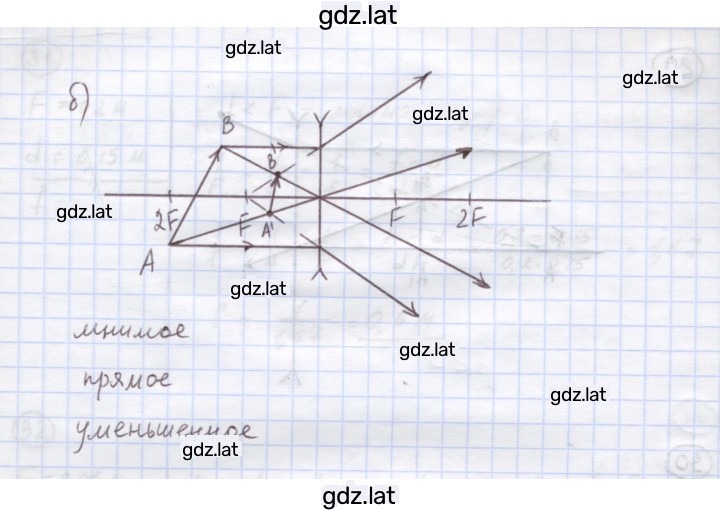 gdz.lat
gdz.lat
gdz.lat
б)
gdz.lat
B
B'
gdz.lat
2F F F 2F
A'
A
gdz.lat
мнимое
gdz.lat
прямое
gdz.lat
уменьшенное
gdz.lat
gdz.lat